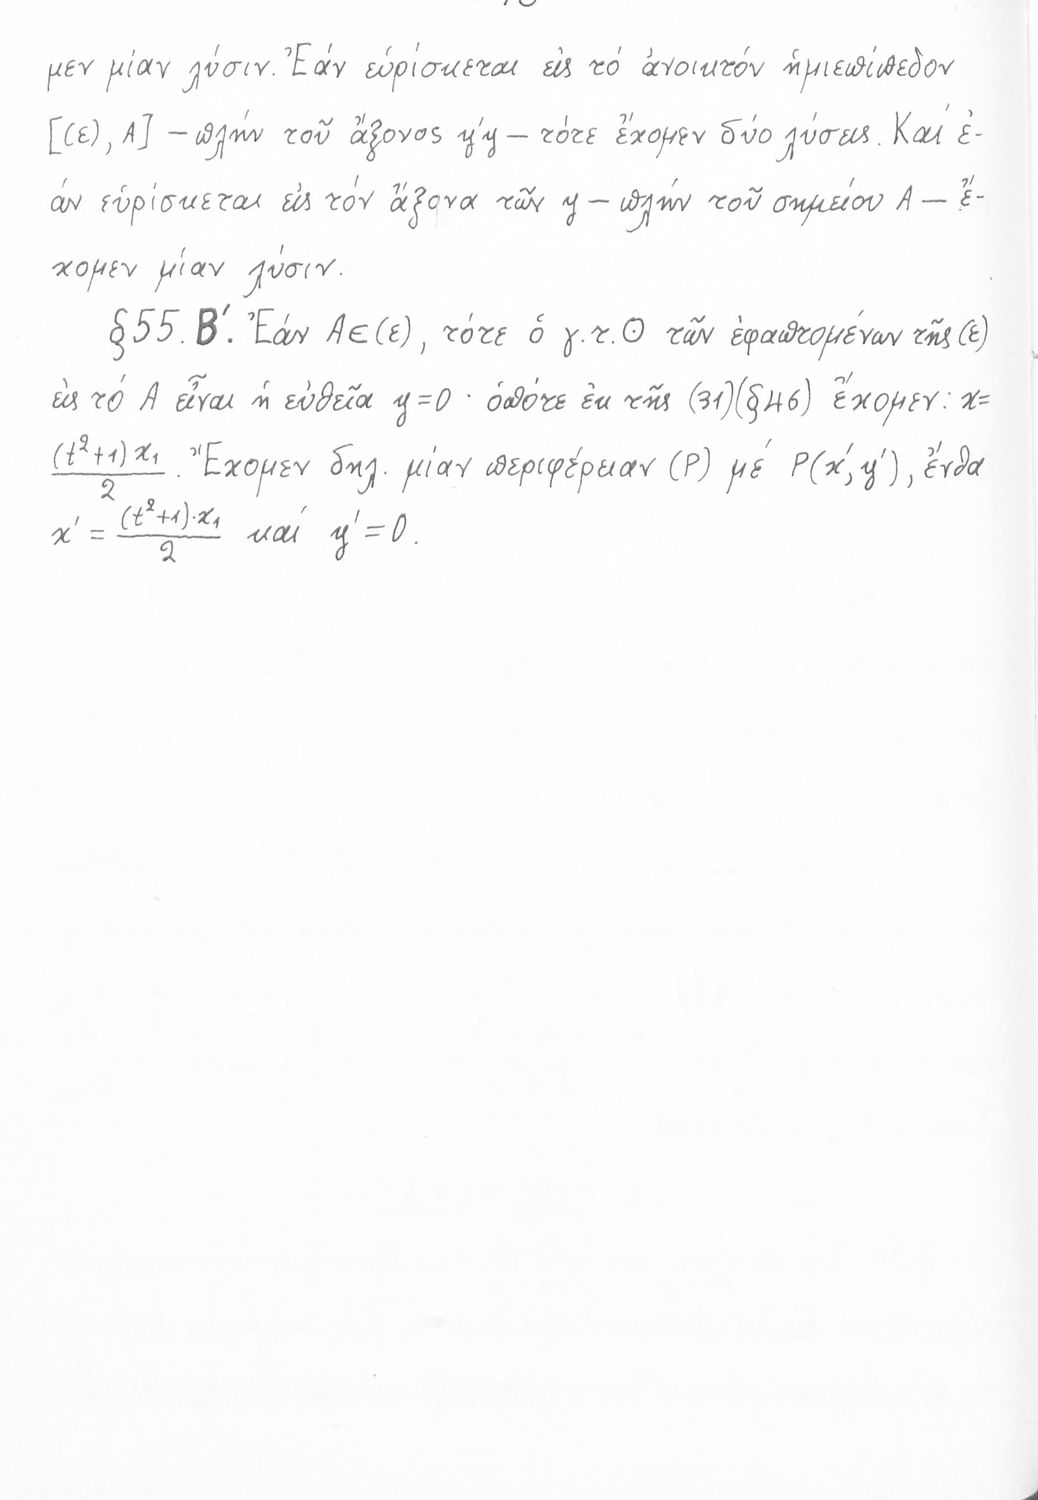 μεν μίαν λύσιν. Ἐάν εὑρίσκεται εἰς τό ἀνοικτόν ἡμιεπίπεδον
[(ε), Α] – πλήν τοῦ ἄξονος y'y – τότε ἔχομεν δύο λύσεις. Καί ἐ-
άν εὑρίσκεται εἰς τόν ἄξονα τῶν y – πλήν τοῦ σημείου Α – ἔ-
χομεν μίαν λύσιν.
§55. Β'. Ἐάν Α∈(ε), τότε ὁ γ.τ.Θ τῶν ἐφαπτομένων τῆς (ε)
εἰς τό Α εἶναι ἡ εὐθεῖα y=0 · ὁπότε ἐκ τῆς (31)(§46) ἔχομεν: x=
(t²+1)x₁/2. Ἔχομεν δηλ. μίαν περιφέρειαν (Ρ) μέ Ρ(x', y'), ἔνθα
x' = (t²+1)·x₁/2 καί y'=0.